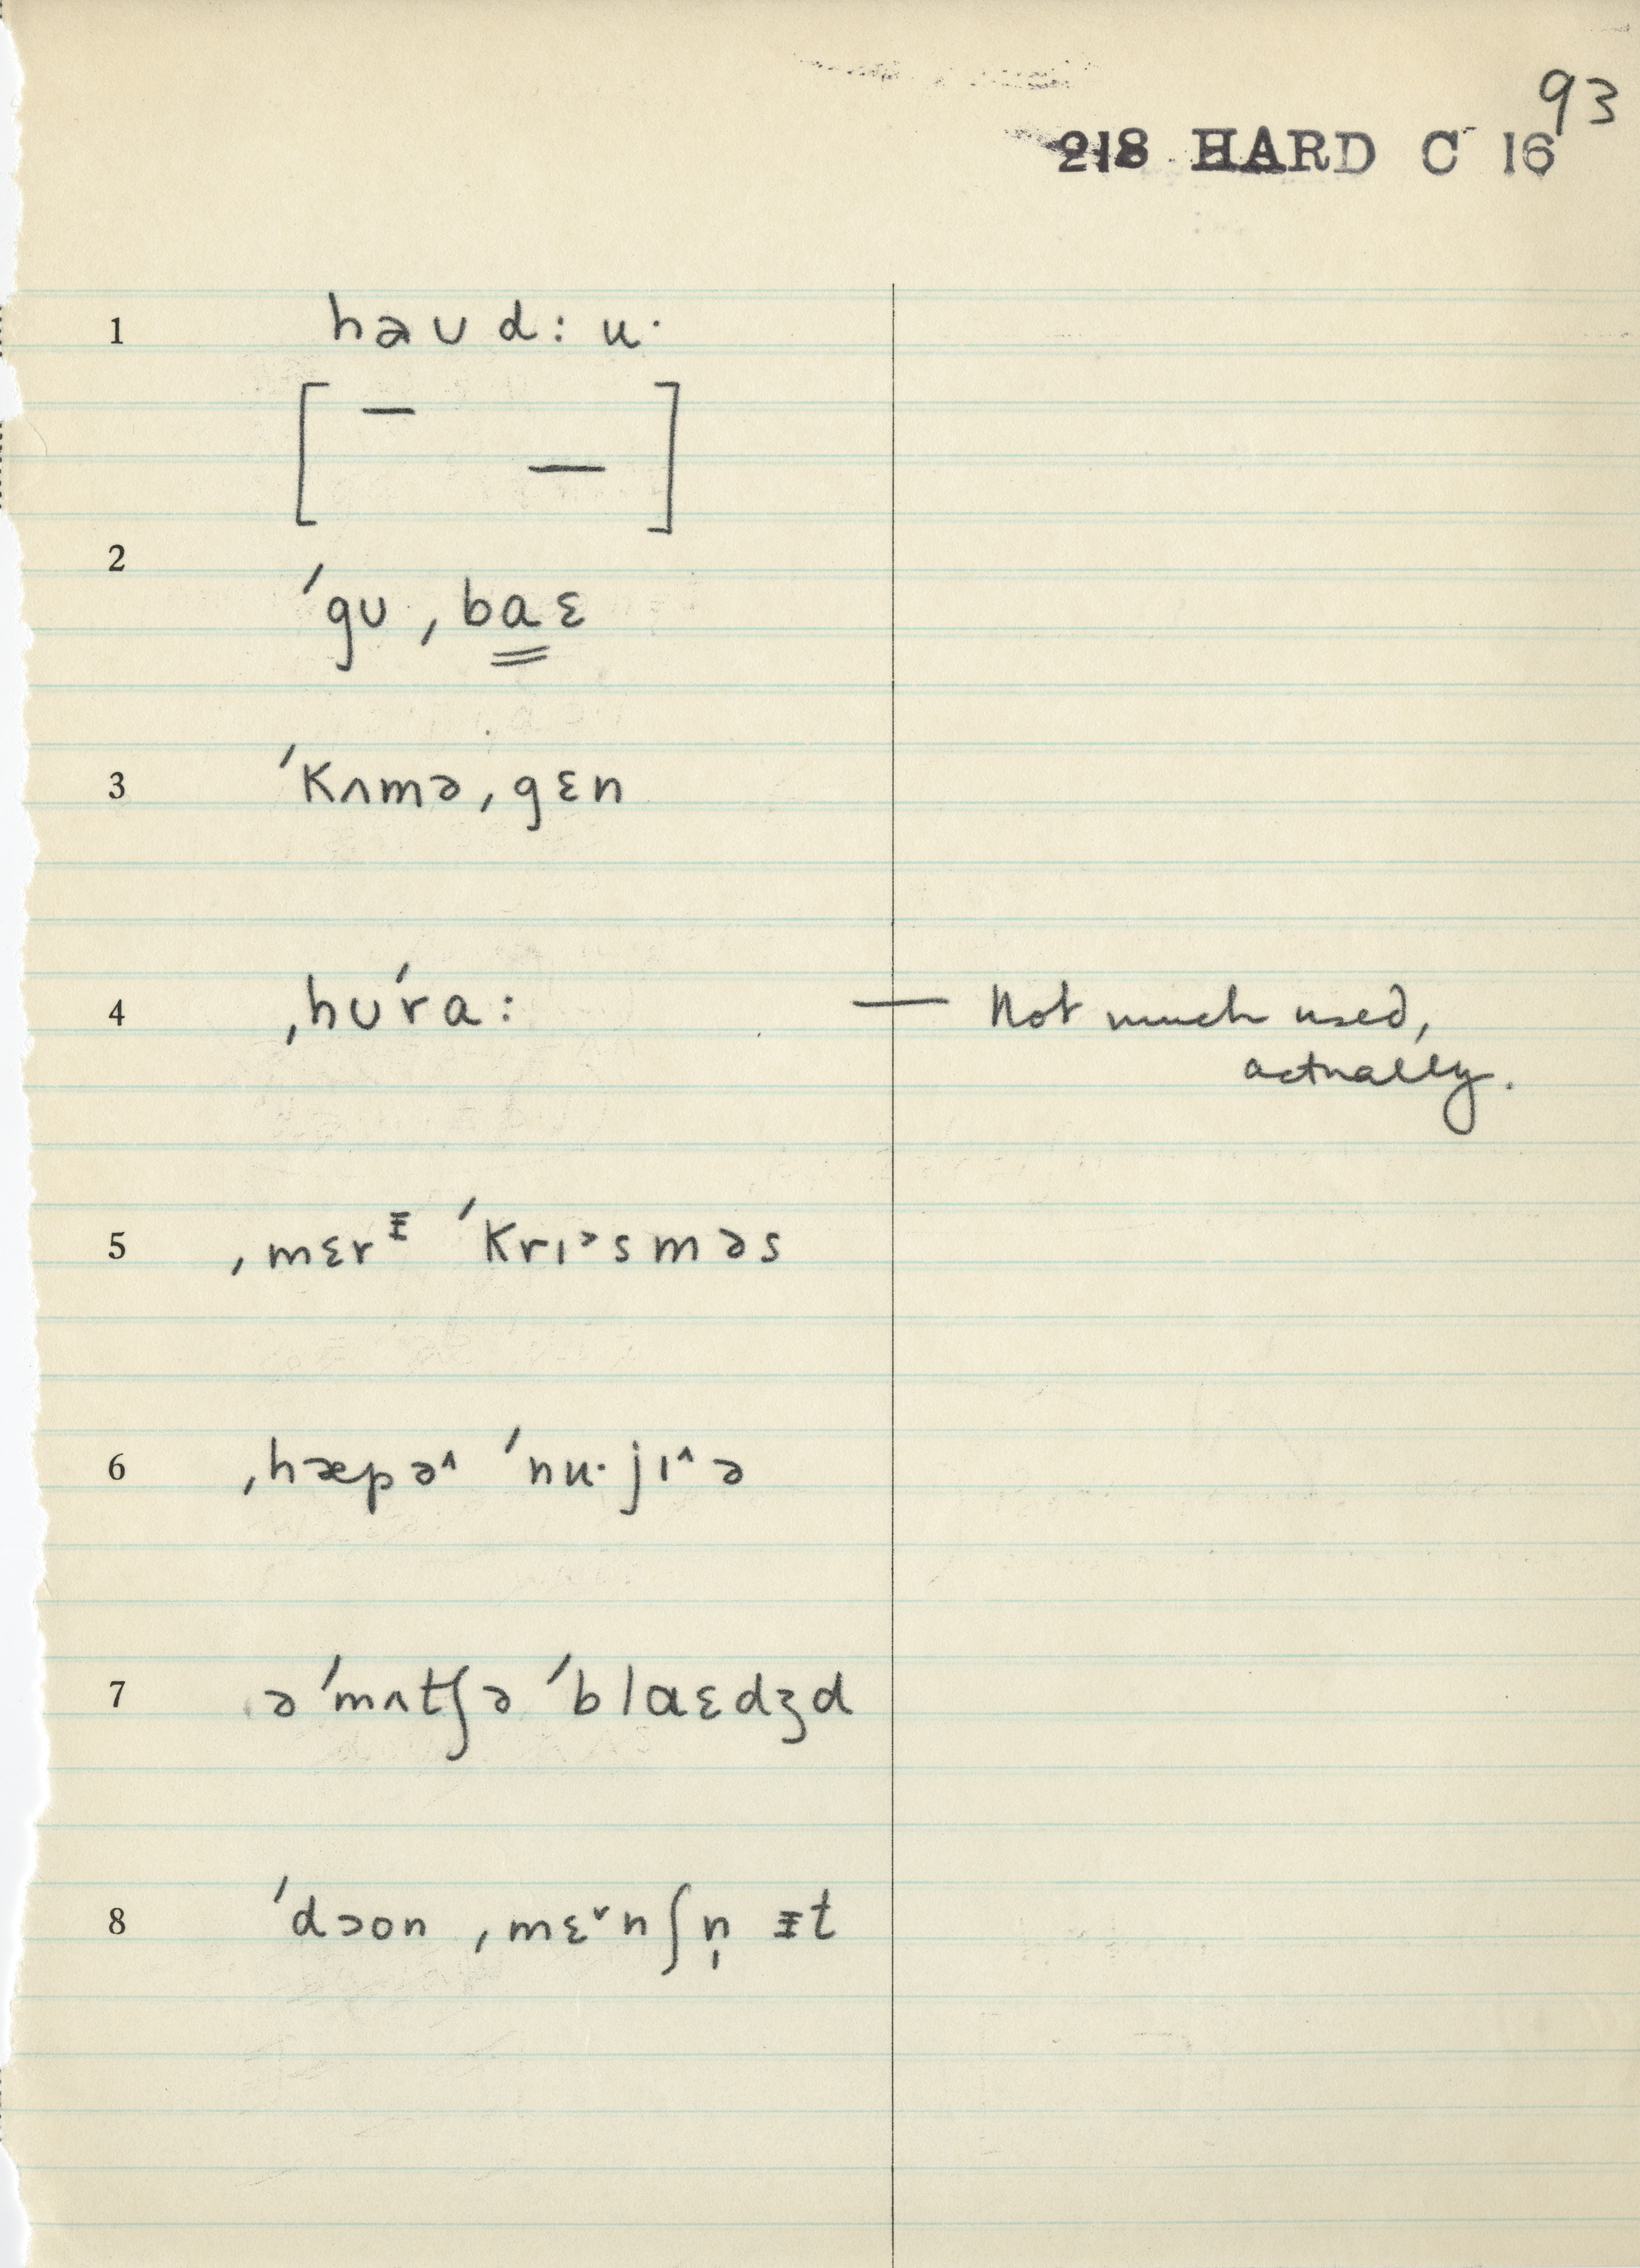 93
218 HARD C 16
1 haʊd:u·
[ — — ]
2 ˈgʊˌbaɛ
3 ˈkʌməˌgɛn
4 ˌhʊˈra: — Not much used,
actually.
5 ˌmɛrᵻ ˈkrɪ˃sməs
6 ˌhæpə^ ˈnu·jɪ^ə
7 əˈmʌtʃə ˈblaɛdʒd
8 ˈdɔon ˌmɛ˅nʃn̩ ᵻt